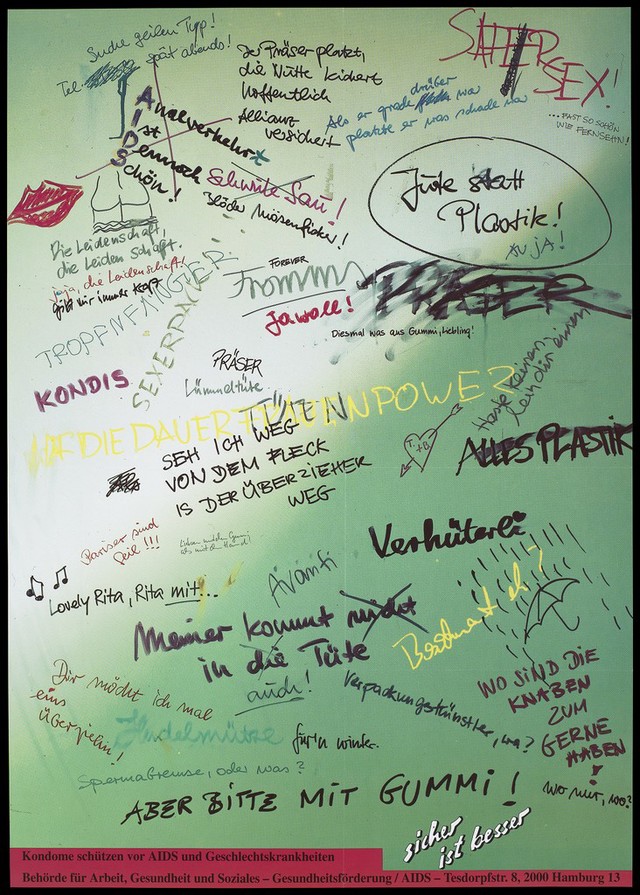 Suche geilen Typ!
spät abends!
Tel.
Der Präser platzt,
die Nutte kichert
Hoffentlich
Allianz
versichert
SAFER
SEX!
drüber
Als er grade war
platzte er was schade war
...FAST SO SCHÖN
WIE FERNSEHN!
Analverkehr
Ist
Dennoch
Schön!
Schwule Sau!
Blöder Mösenficker!
Jute statt
Plastik!
au ja!
Die Leidenschaft,
die Leiden schafft.
jaja, die Leidenschaft!
gibt mir immer Kraft
TROPFENFÄNGER
FOREVER
Fromms
Jawoll!
Diesmal was aus Gummi, Liebling!
KONDIS
PRÄSER
Lümmeltüte
Haste keinen,
leih dir einen
AUF DIE DAUER FRAUENPOWER
TÜTEN
SEH ICH WEG
VON DEM FLECK
IS DER ÜBERZIEHER
WEG
T.+B.
ALLES PLASTIK
Pariser sind
geil!!!
Lieber mit dem Gummi
als mit der Hand!
Verhüterli
Avanti
Lovely Rita, Rita mit!...
Meiner kommt nicht
in die Tüte
auch!
Dir möcht ich mal
eins
überziehn!
Verpackungskünstler, wa?
WO SIND DIE
KNABEN
ZUM
GERNE
HABEN
!
wo nur, wo?
Hudelmütze
für'n winter.
Spermabremse, oder was?
ABER BITTE MIT GUMMI!
sicher
ist besser
Kondome schützen vor AIDS und Geschlechtskrankheiten
Behörde für Arbeit, Gesundheit und Soziales – Gesundheitsförderung / AIDS – Tesdorpfstr. 8, 2000 Hamburg 13